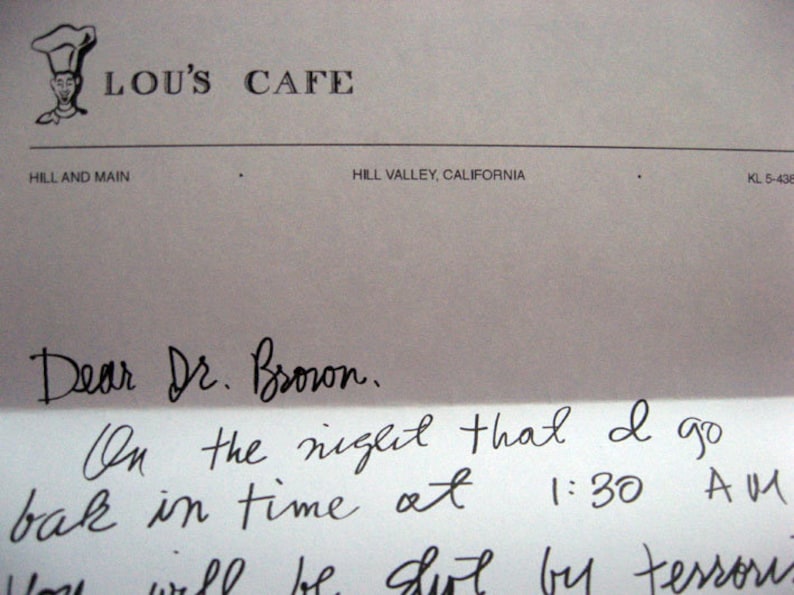 LOU'S CAFE
HILL AND MAIN · HILL VALLEY, CALIFORNIA · KL 5-438
Dear Dr. Brown.
On the night that I go
bak in time at 1:30 AM
You will be shot by terroris